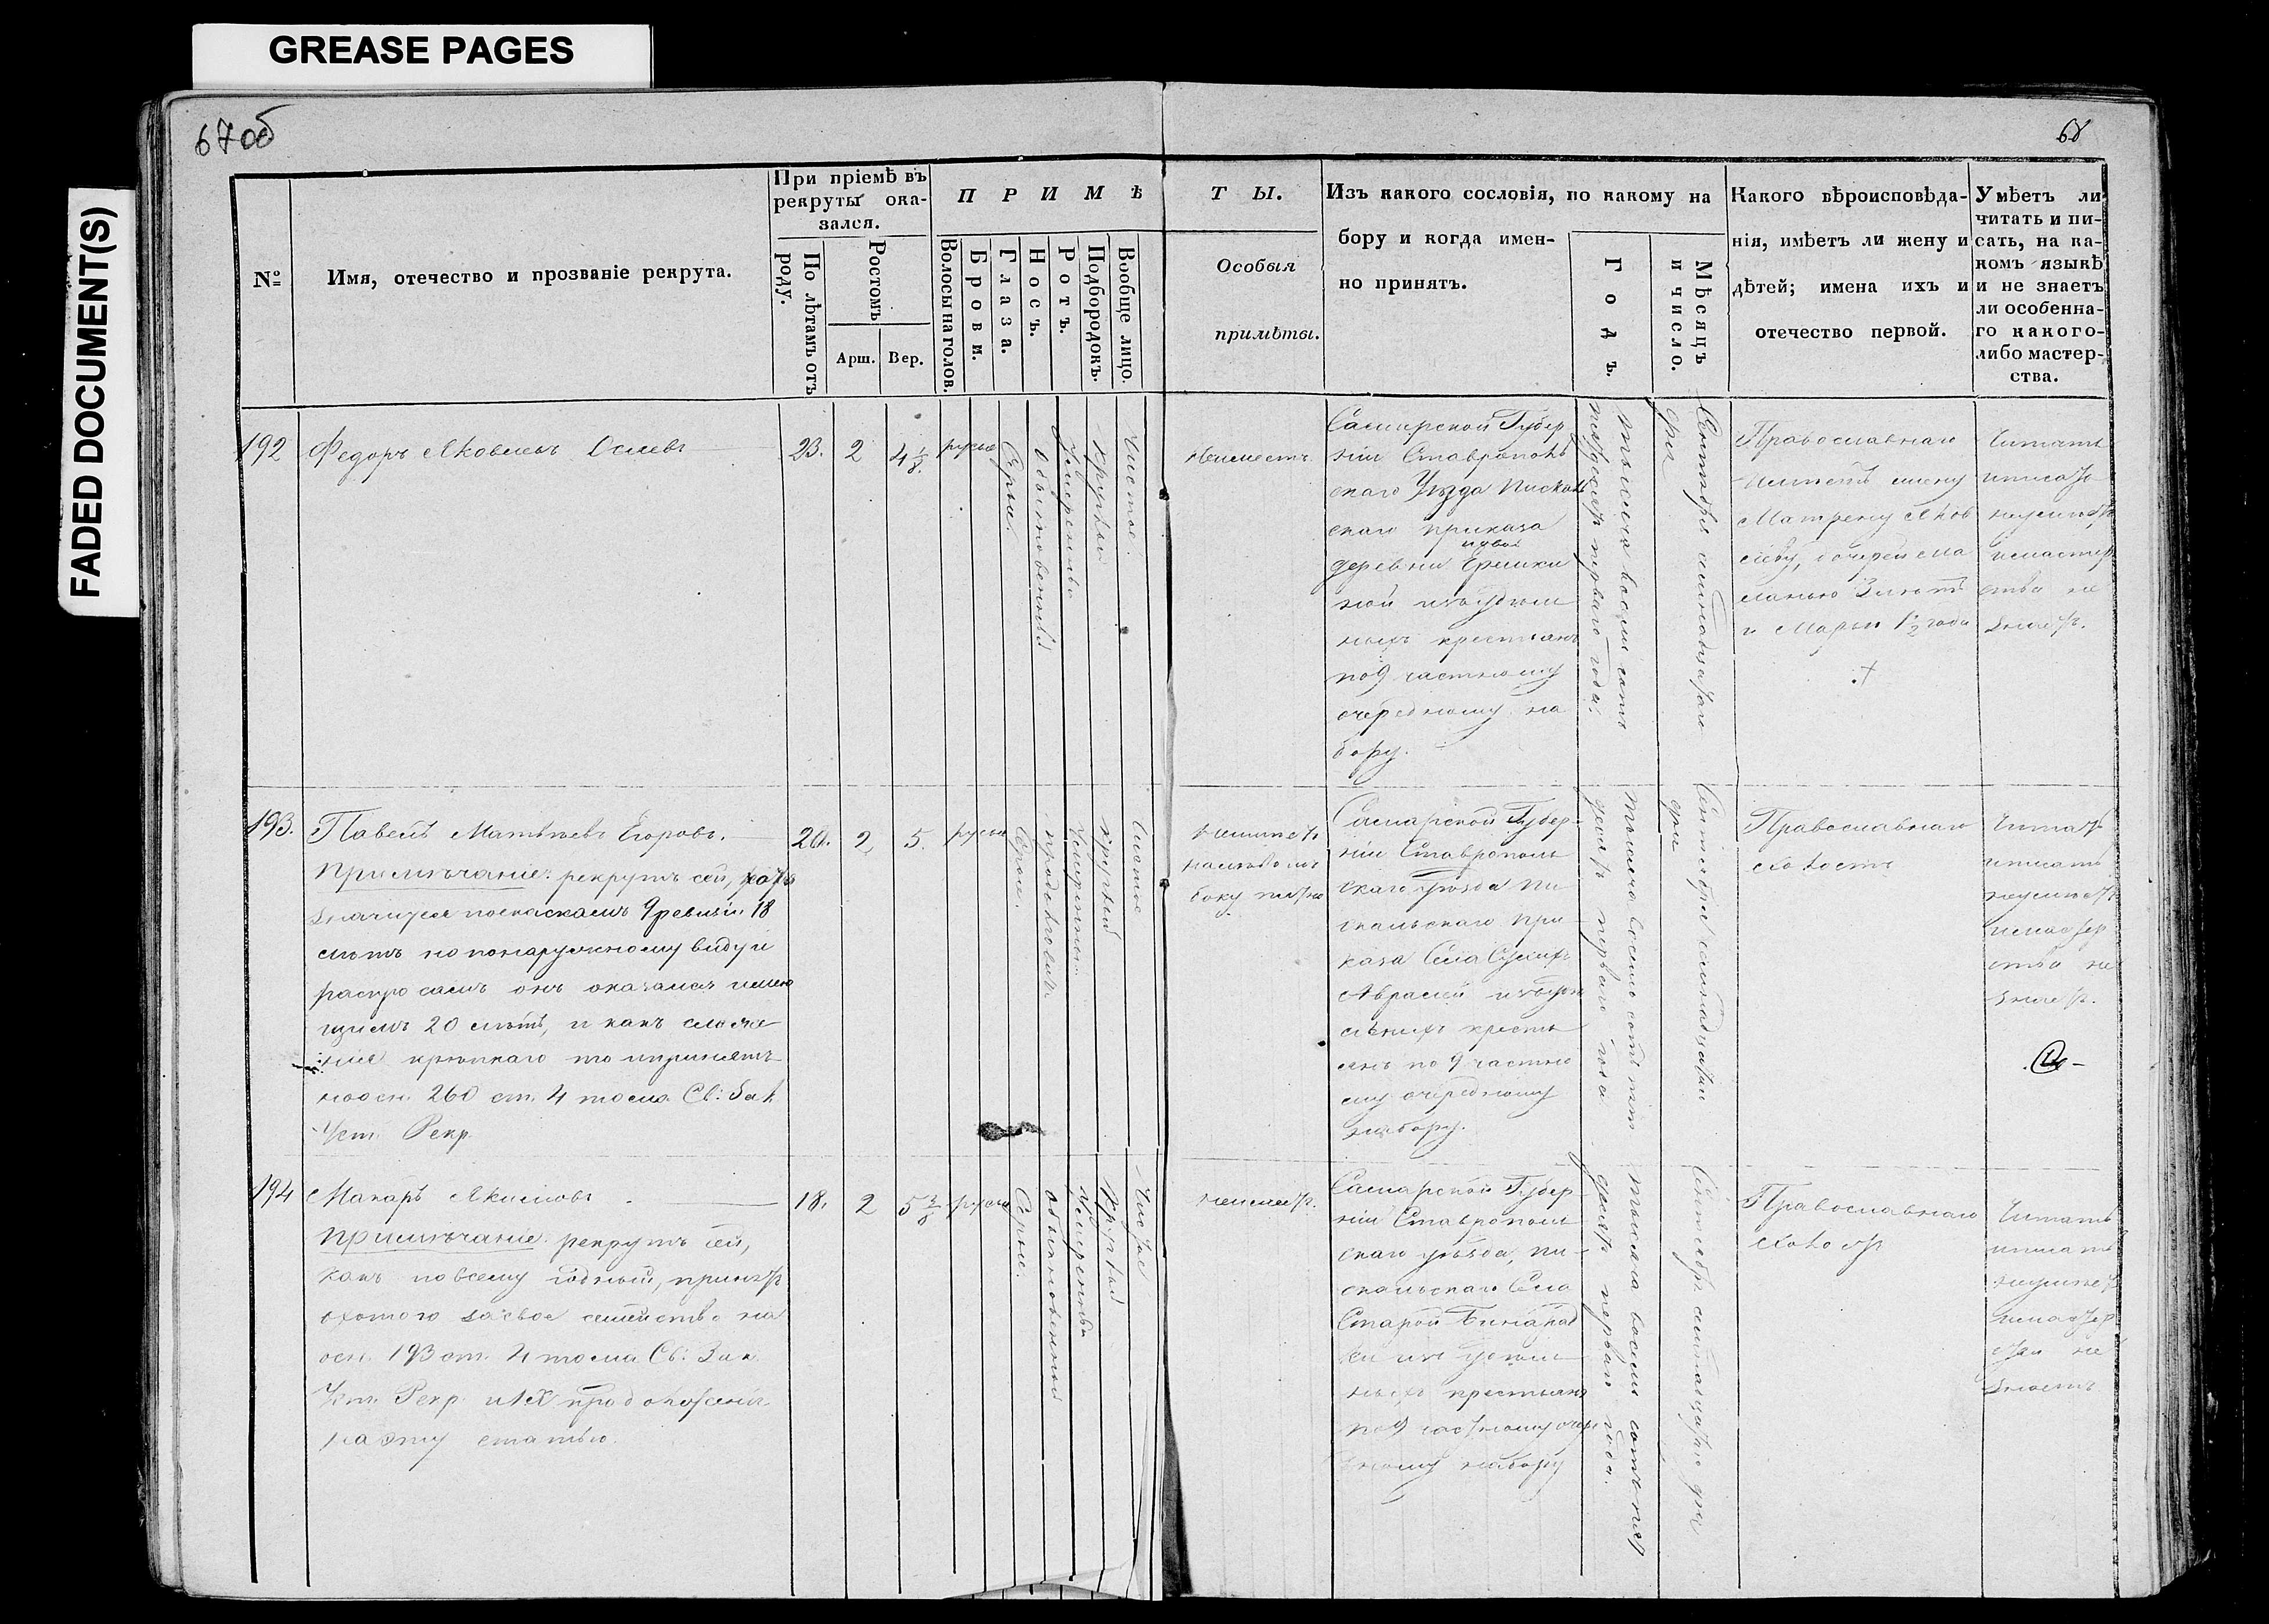 GREASE PAGES
FADED DOCUMENT(S)
67 об
68
№
Имя, отечество и прозваніе рекрута.
При пріемѣ въ
рекруты ока-
зался.
По лѣтамъ отъ
роду.
Ростомъ
Арш.
Вер.
ПРИМѢ
Волосы на голов.
Брови.
Глаза.
Носъ.
Ротъ.
Подбородокъ.
Вообще лицо.
ТЫ.
Особыя
примѣты.
Изъ какого сословія, по какому на
бору и когда имен-
но принятъ.
Годъ.
Мѣсяцъ
и число.
Какого вѣроисповѣда-
нія, имѣетъ ли жену и
дѣтей; имена ихъ и
отечество первой.
Умѣетъ ли
читать и пи-
сать, на ка-
комъ языкѣ
и не знаетъ
ли особенна-
го какого-
либо мастер-
ства.
192
Федоръ Яковлевъ
23.
2
4 1/8
русые
Серые
обыкновенный
умеренный
круглый
Чистое.
Самарской Губер
ніи Ставрополь
скаго Уѣзда
скаго приказа
деревни
ныхъ крестьянъ
по 9 частному
очередному на
бору.
тысяча восемь сотъ
пятьдесятъ перваго года.
Сентября семнадцатаго
дня
Православнаго
имѣетъ жену
Матрену Яков
леву, дочерей Ма
ланью 3 лѣтъ
и Марью 1/2 года
Читать
и писать
неумѣетъ
и мастер
ства не
знаетъ.
193.
Павелъ Матвѣевъ Егоровъ.
Примѣчаніе: рекрутъ сей, хотя
значится по сказкамъ 9 ревизіи 18
лѣтъ но по наружному виду и
распросамъ онъ оказался имею
щимъ 20 лѣтъ, и какъ сложе
нія крѣпкаго то и принятъ
на осн. 260 ст. 4 тома Св: Зак
Уст. Рекр.
20.
2
5.
русые
Серые.
умеренный
круглый
Чистое
на левомъ
боку пятно
Самарской Губер-
ніи Ставрополь
скаго уѣзда Пи
скальскаго При
каза Села
крестьянъ
по 9 частно
му очередному
набору.
тысяча восемь сотъ пять
десятъ перваго года
Сентября семнадцатаго
дня
Православнаго
холостъ
Читать
и писать
неумѣетъ
и мастер
ства не
знаетъ.
194
Макаръ Якимовъ
Примѣчаніе: рекрутъ сей,
какъ по всему годный, принятъ
охотою за свое семейство на
осн. 193 ст. 4 тома Св: Зак
Уст. Рекр. и IX продолженія
на эту статью.
18.
2
5 3/8
русые
Серые.
обыкновенный
умеренный
Круглый
Чистое
неимеетъ.
Самарской Губер-
ніи Ставрополь
скаго уѣзда, Пи-
скальскаго Села
Старой Бинарад
ки изъ удѣль
ныхъ крестьянъ
по 9 частному очере
дному набору
тысяча восемь сотъ пять
десятъ перваго года.
Сентября семнадцатаго дня
Православнаго
холостъ
Читать
и писать
неумѣетъ
и мастер
ства не
знаетъ